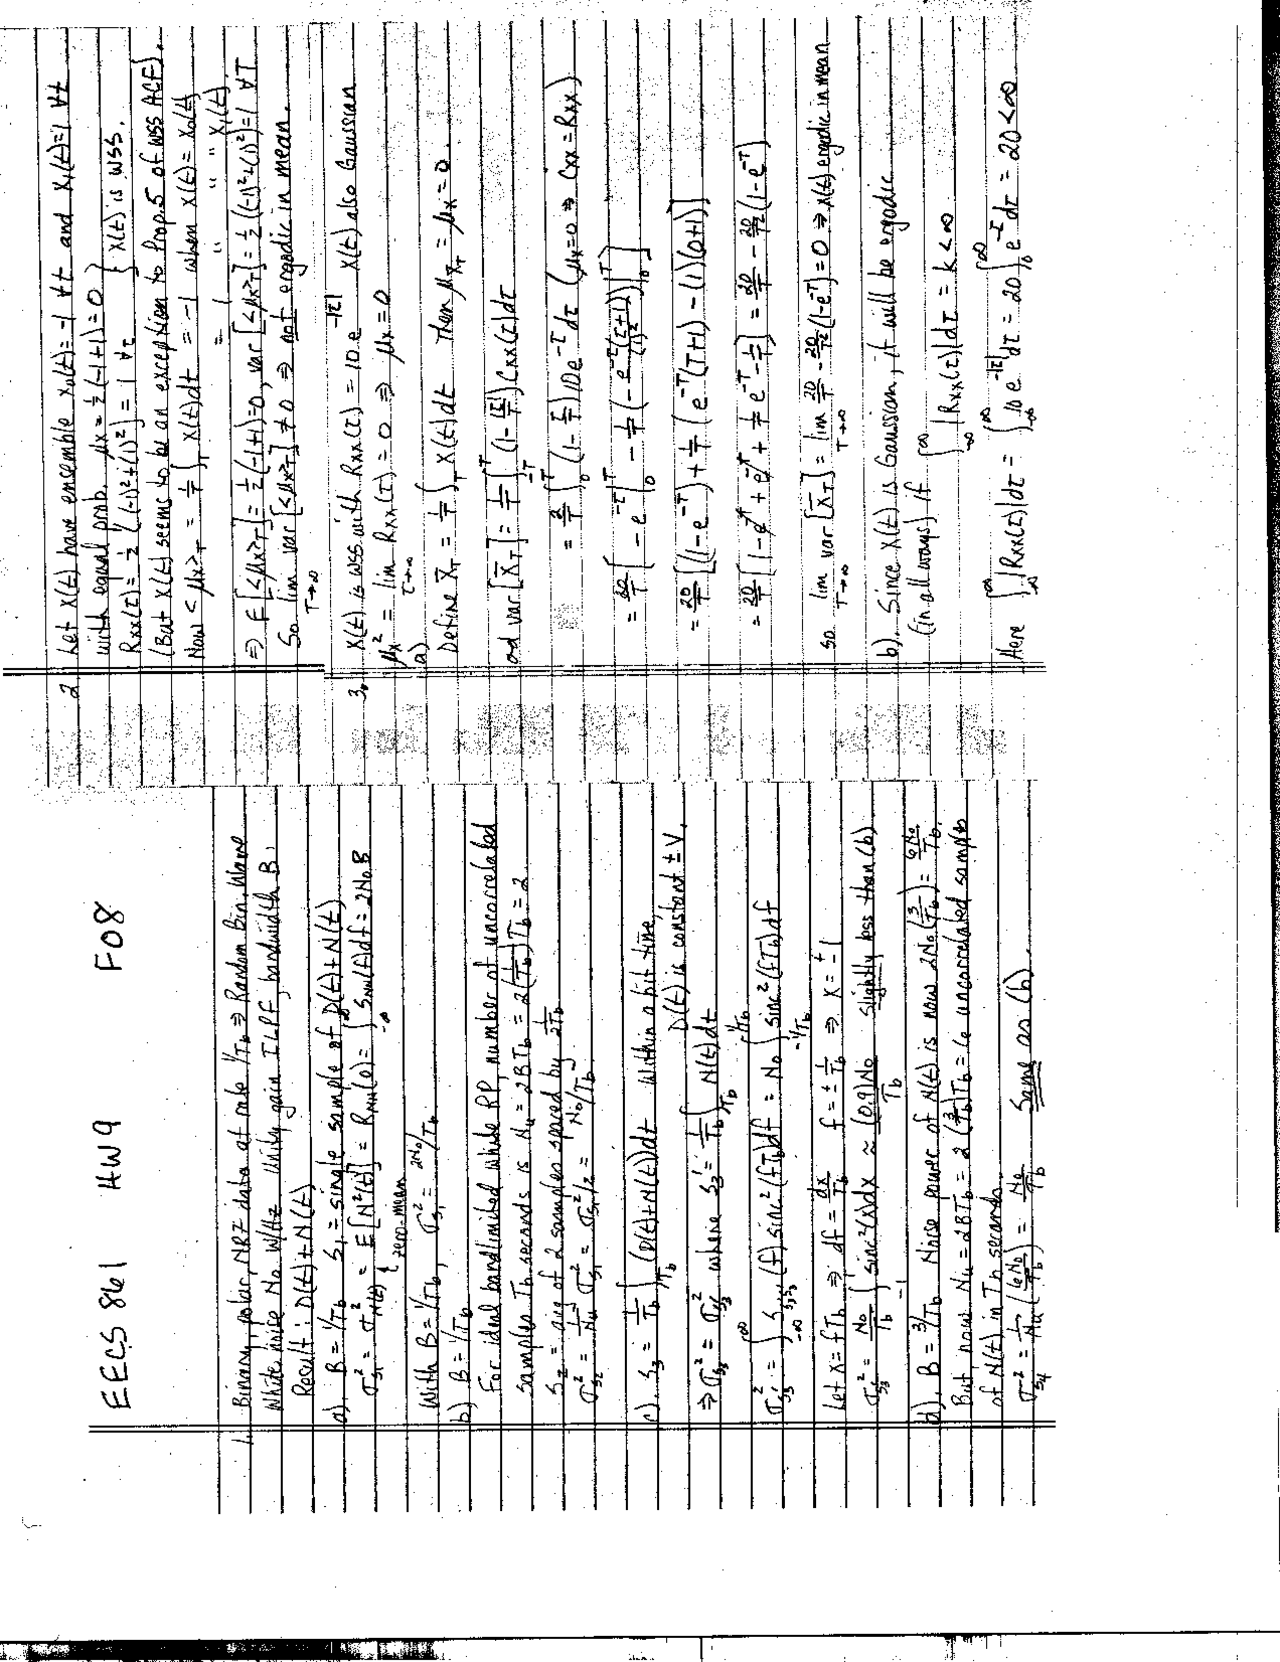 EECS 861 HW9 F08
1. Binary, polar, NRZ data at rate 1/Tb ⇒ Random Bin. Wave
White noise No W/Hz Unity gain ILPF, bandwidth B.
Result: D(t)+N(t)
a). B = 1/Tb S₁ = single sample of D(t)+N(t)
σ²s₁ = σ²N(t) = E[N²(t)] = RNN(0) = ∫_{-∞}^{∞} SNN(f)df = 2NoB
zero-mean
With B = 1/Tb, σ²s₁ = 2No/Tb
b) B = 1/Tb
For ideal bandlimited white RP, number of uncorrelated
samples Tb seconds is Nu = 2BTb = 2(1/Tb)Tb = 2
S₂ = avg of 2 samples spaced by 1/2Tb
σ²s₂ = 1/Nu σ²s₁ = σ²s₁/2 = No/Tb
c). S₃ = 1/Tb ∫_{Tb} (D(t)+N(t))dt Within a bit time,
D(t) is constant ±V,
⇒ σ²s₃ = σ²s₃' where S₃' = 1/Tb ∫_{Tb} N(t)dt
σ²s₃' = ∫_{-∞}^{∞} S_{s₃'s₃'}(f) sinc²(fTb)df = No ∫_{-1/Tb}^{1/Tb} sinc²(fTb)df
Let x = fTb ⇒ df = dx/Tb f = ± 1/Tb ⇒ x = ±1
σ²s₃' = No/Tb ∫_{-1}^{1} sinc²(x)dx ≈ (0.9)No/Tb slightly less than (b)
d). B = 3/Tb Noise power of N(t) is now 2No(3/Tb) = 6No/Tb.
But now Nu = 2BTb = 2(3/Tb)Tb = 6 uncorrelated samples
of N(t) in Tb seconds.
σ²s₄ = 1/Nu (6No/Tb) = No/Tb Same as (b).
2 Let X(t) have ensemble x₀(t) = -1 ∀t and x₁(t) = 1 ∀t
with equal prob. μx = ½(-1+1) = 0
Rxx(τ) = ½[(-1)²+(1)²] = 1 ∀τ } X(t) is WSS.
(But X(t) seems to be an exception to Prop. 5 of WSS ACF).
Now <μx>T = 1/T ∫_T X(t)dt = -1 when X(t) = x₀(t)
= 1 " " x₁(t)
⇒ E[<μx>T] = ½(-1+1) = 0, var[<μx>T] = ½((-1)²+(1)²) = 1 ∀T
So lim T→∞ var[<μx>T] ≠ 0 ⇒ not ergodic in mean.
3. X(t) is WSS with Rxx(τ) = 10e^{-|τ|} X(t) also Gaussian
μx² = lim τ→∞ Rxx(τ) = 0 ⇒ μx = 0
a)
Define X̄T = 1/T ∫_T X(t)dt Then μX̄T = μx = 0.
and var[X̄T] = 1/T ∫_{-T}^{T} (1-|τ|/T) Cxx(τ)dτ
= 2/T ∫_0^T (1-τ/T)10e^{-τ}dτ (μx=0 ⇒ Cxx = Rxx)
= 20/T [-e^{-τ}|_0^T - 1/T (-e^{-τ}(τ+1)/(1)²)|_0^T]
= 20/T [(1-e^{-T}) + 1/T (e^{-T}(T+1) - (1)(0+1))]
= 20/T [1 - e^{-T} + e^{-T} + 1/T e^{-T} - 1/T] = 20/T - 20/T² (1-e^{-T})
so lim T→∞ var[X̄T] = lim T→∞ 20/T - 20/T² (1-e^{-T}) = 0 ⇒ X(t) ergodic in mean
b). Since X(t) is Gaussian, it will be ergodic
(in all ways) if ∫_{-∞}^{∞} |Rxx(τ)|dτ = k < ∞
Here ∫_{-∞}^{∞} |Rxx(τ)|dτ = ∫_{-∞}^{∞} 10e^{-|τ|}dτ = 20∫_0^{∞} e^{-τ}dτ = 20 < ∞